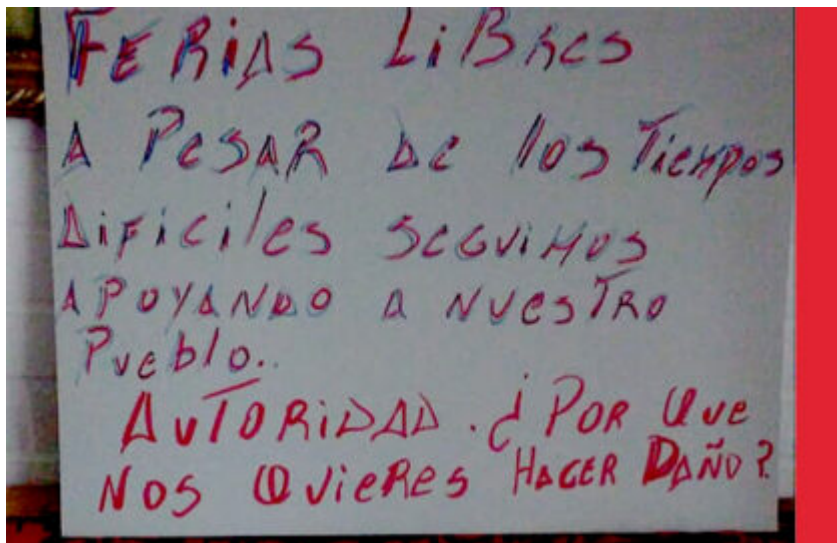 FERIAS LiBRes
A PesAR De los Tiempos
DiFiciles seGuiMos
APOYANDO a NuesTRO
Pueblo..
AuTORiDAD. ¿POR Que
NOS QuieRes HACER DAÑO?